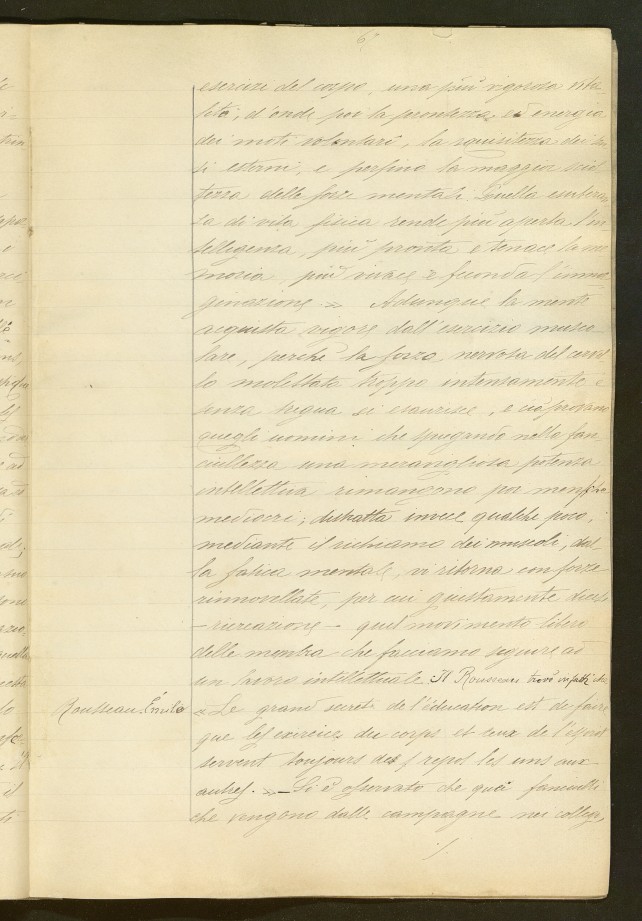 6.
esercizi del corpo, una più vigorosa vita-
lità; d'onde poi la prontezza, ed energia
dei moti volontari, la squisitezza dei sen
si esterni, e perfino la maggior sciol
tezza delle forze mentali. Quella esuberan
za di vita fisica rende più aperta l'in
telligenza, più pronta e tenace la me
moria, più vivace e feconda l'imma
ginazione » Adunque la mente
acquista vigore dall'esercizio musco
lare, perchè la forza nervosa del cervel
lo molestata troppo intensamente e
senza tregua si esaurisce, e ciò provano
quegli uomini che spiegando nella fan
ciullezza una meravigliosa potenza
intellettiva rimangono poi
mediocri; distratta invece qualche poco,
mediante il richiamo dei muscoli, dal
la fatica mentale, vi ritorna con forze
rinnovellate, per cui giustamente dicesi
- ricreazione - quel movimento libero
delle membra che facciamo seguire ad
un lavoro intellettuale. Il Rousseau trovò infatti che
Rousseau. Émile
« Le grand secret de l'éducation est de faire
que les exercices du corps et ceux de l'esprit
servent toujours de repos les uns aux
autres. » - Si è osservato che quei fanciulli
che vengono dalle campagne nei collegi,